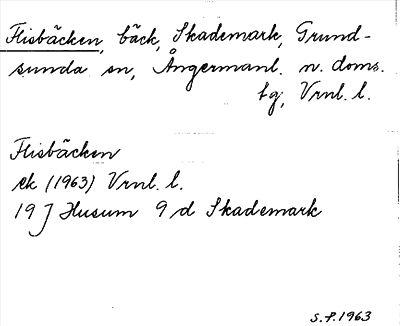 Flisbäcken, bäck, Skademark, Grund-
sunda sn, Ångermanl. n. doms.
tg, Vrnl. l.
Flisbäcken
ek (1963) Vrnl. l.
19 J Husum 9 d Skademark
S.F. 1963